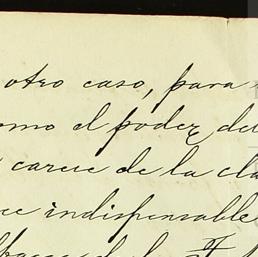 otro caso, para
omo el poder del
carece de la cla
ce indispensable